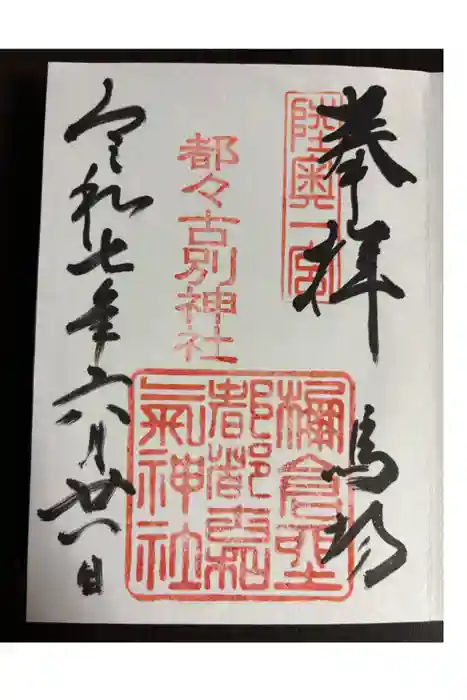 奉拝 馬場
陸奥一宮
都々古別神社
倉
都都古和
氣神社
令和七年六月廿八日